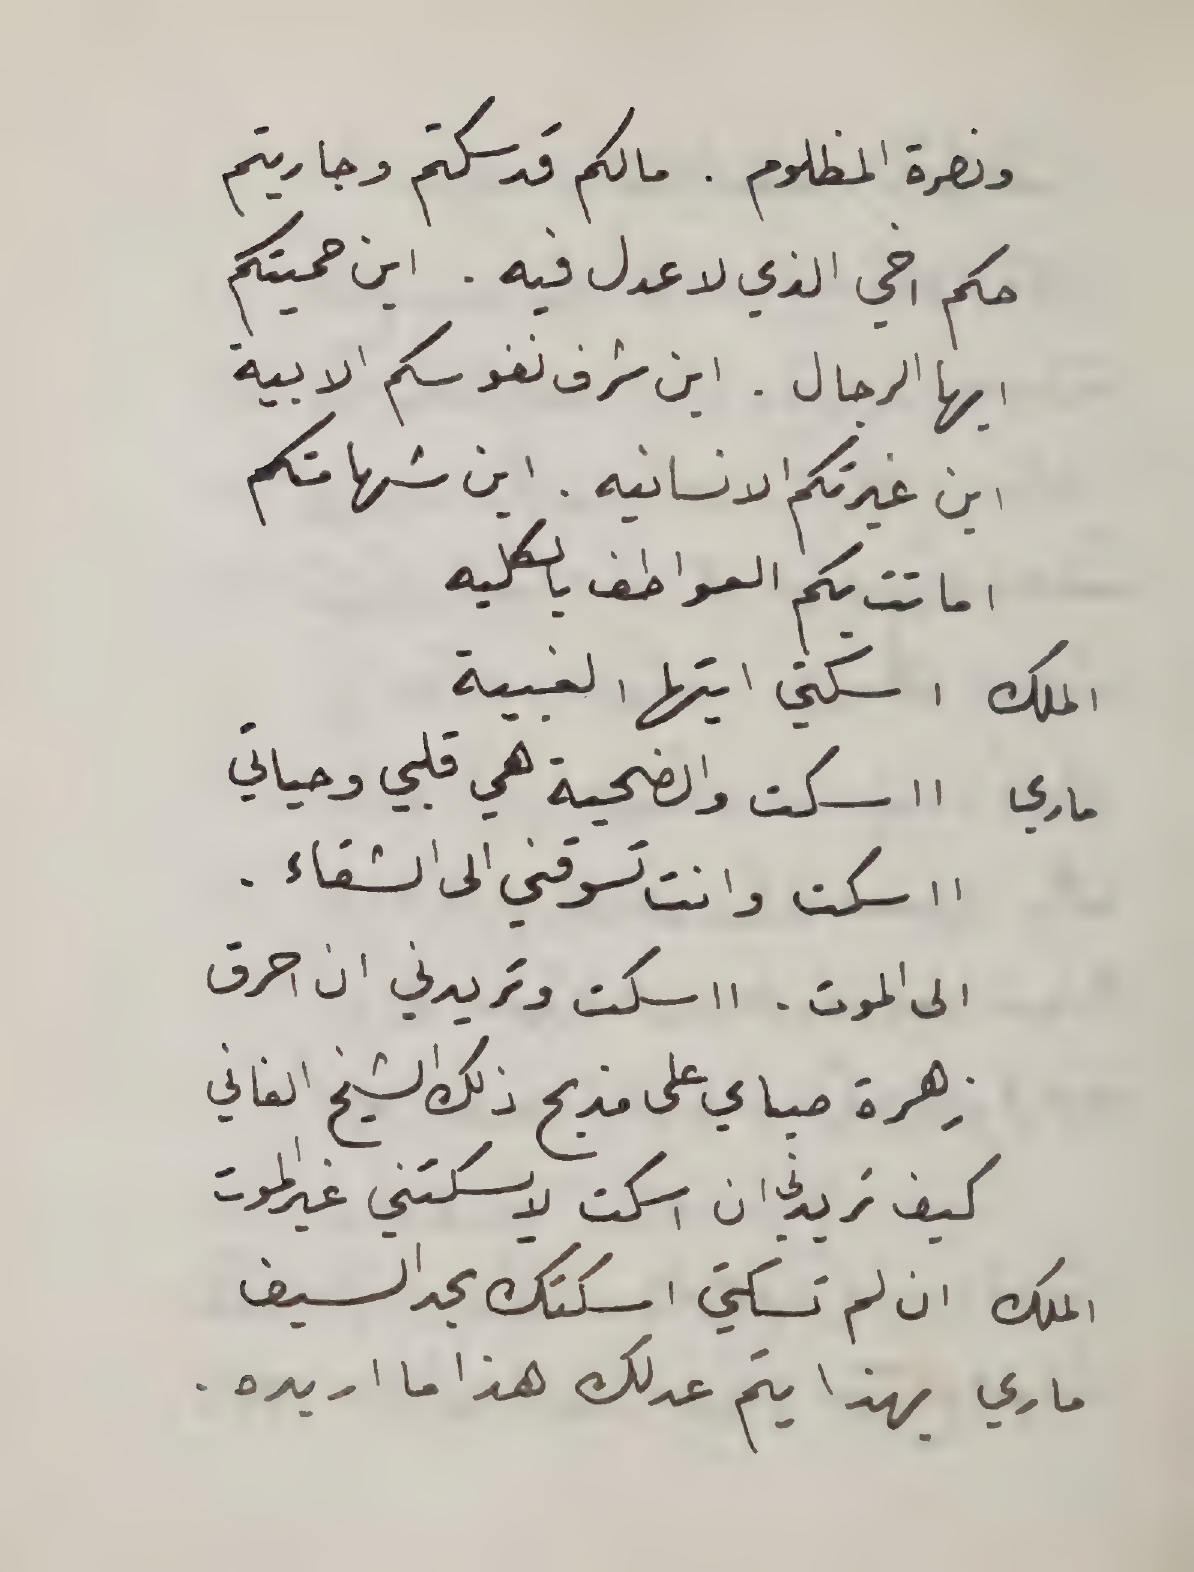 ونصرة المظلوم . مالكم قد سكتم وجاريتم
حكم اخي الذي لا عدل فيه . اين حميتكم
ايها الرجال . اين شرف نفوسكم الابية
اين غيرتكم الانسانيه . اين شهامتكم
اماتت بكم العواطف بالكليه
الملك اسكتي ايتها الغبية
ماري ااسكت والضحية هي قلبي وحياتي
ااسكت وانت تسوقني الى الشقاء .
الى الموت . ااسكت وتريدني ان احرق
زهرة صباي على مذبح ذلك الشيخ الفاني
كيف تريدني ان اسكت لا يسكتني غير الموت
الملك ان لم تسكتي اسكتك بحد السيف
ماري بهذا يتم عدلك هذا ما اريده .